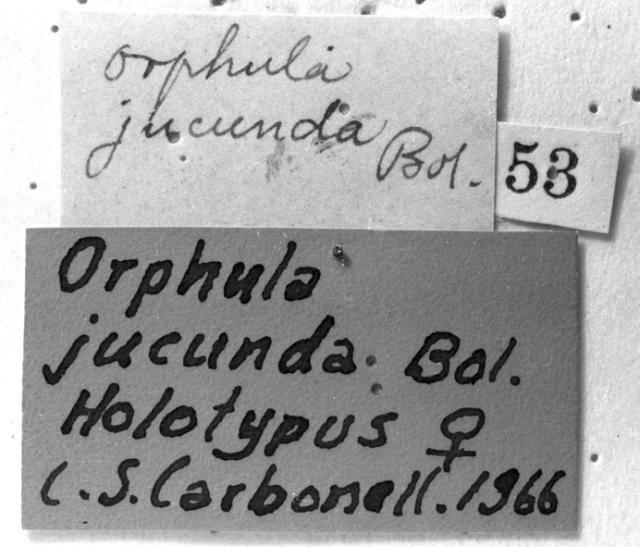 Orphula
jucunda
Bol.
53
Orphula
jucunda. Bol.
Holotypus ♀
C.S.Carbonell.1966